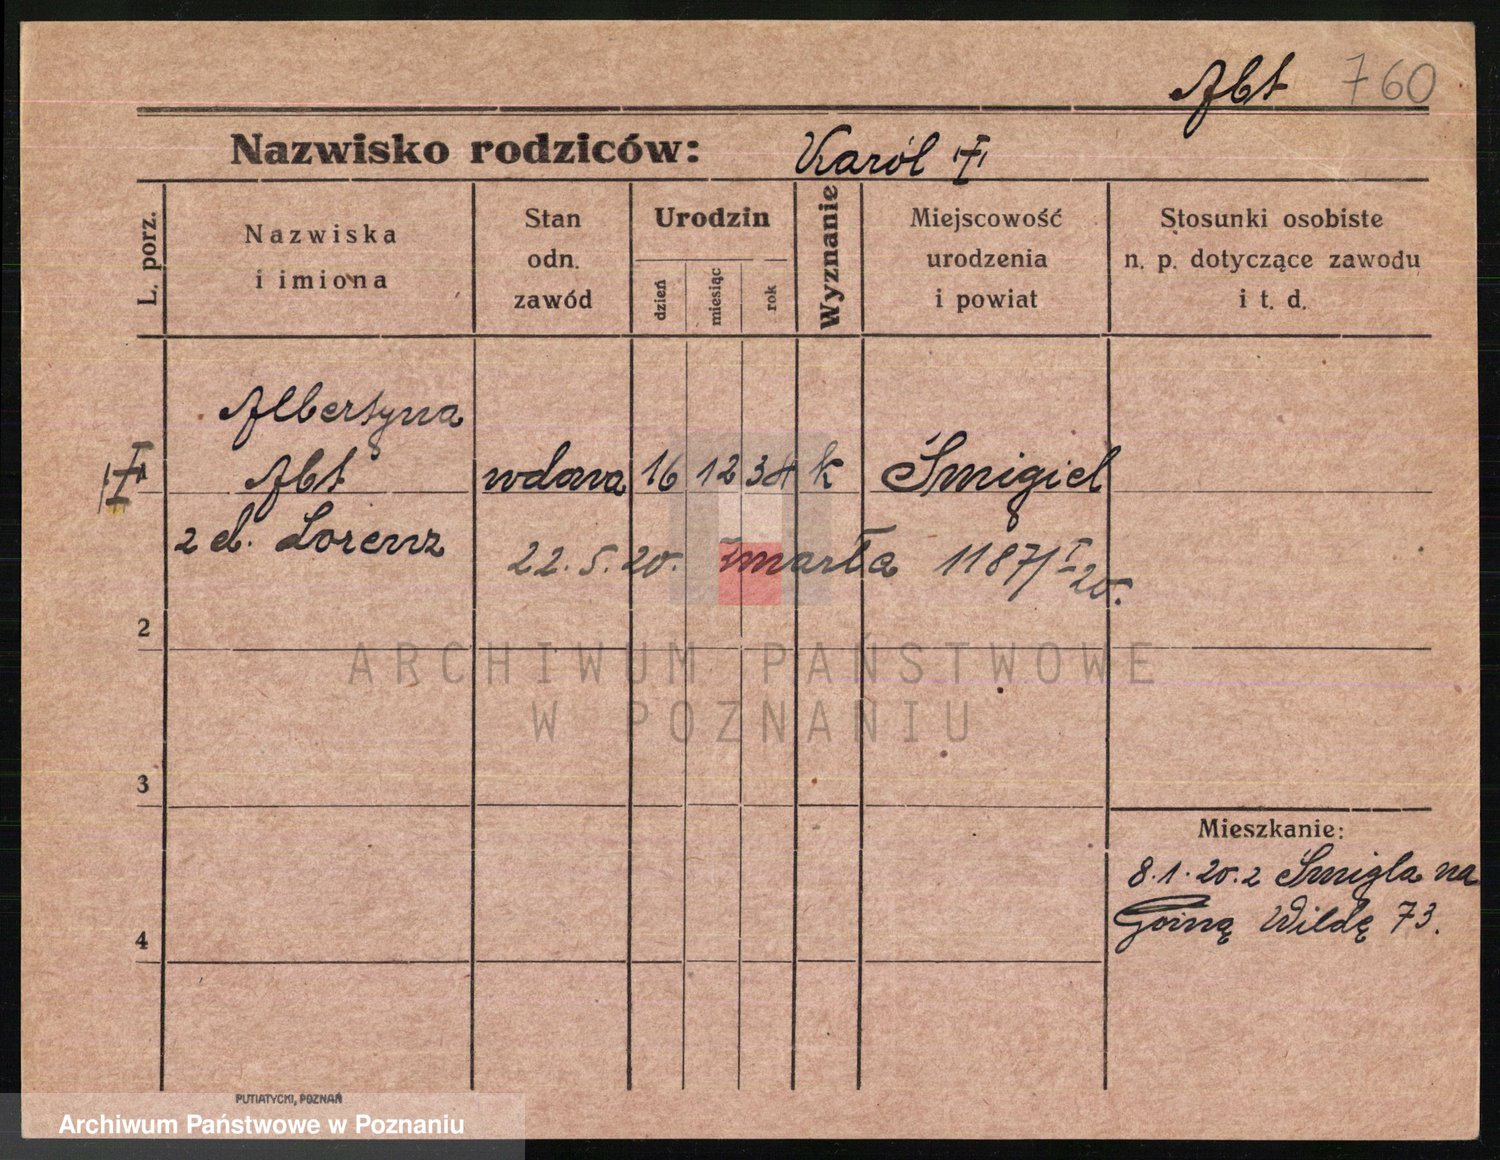 Abt 760
Nazwisko rodziców: Karól I
L. porz.
Nazwiska
i imiona
Stan
odn.
zawód
Urodzin
dzień
miesiąc
rok
Wyznanie
Miejscowość
urodzenia
i powiat
Stosunki osobiste
n. p. dotyczące zawodu
i t. d.
Albertyna
I Abt wdowa 16 12 34 k Śmigiel
z d. Lorenz
22.5.20. zmarła 1187/I-20.
2
ARCHIWUM PAŃSTWOWE
W POZNANIU
3
Mieszkanie:
8.1.20. z Śmigla na
Górną Wildę 73.
4
PUTIATYCKI, POZNAŃ
Archiwum Państwowe w Poznaniu